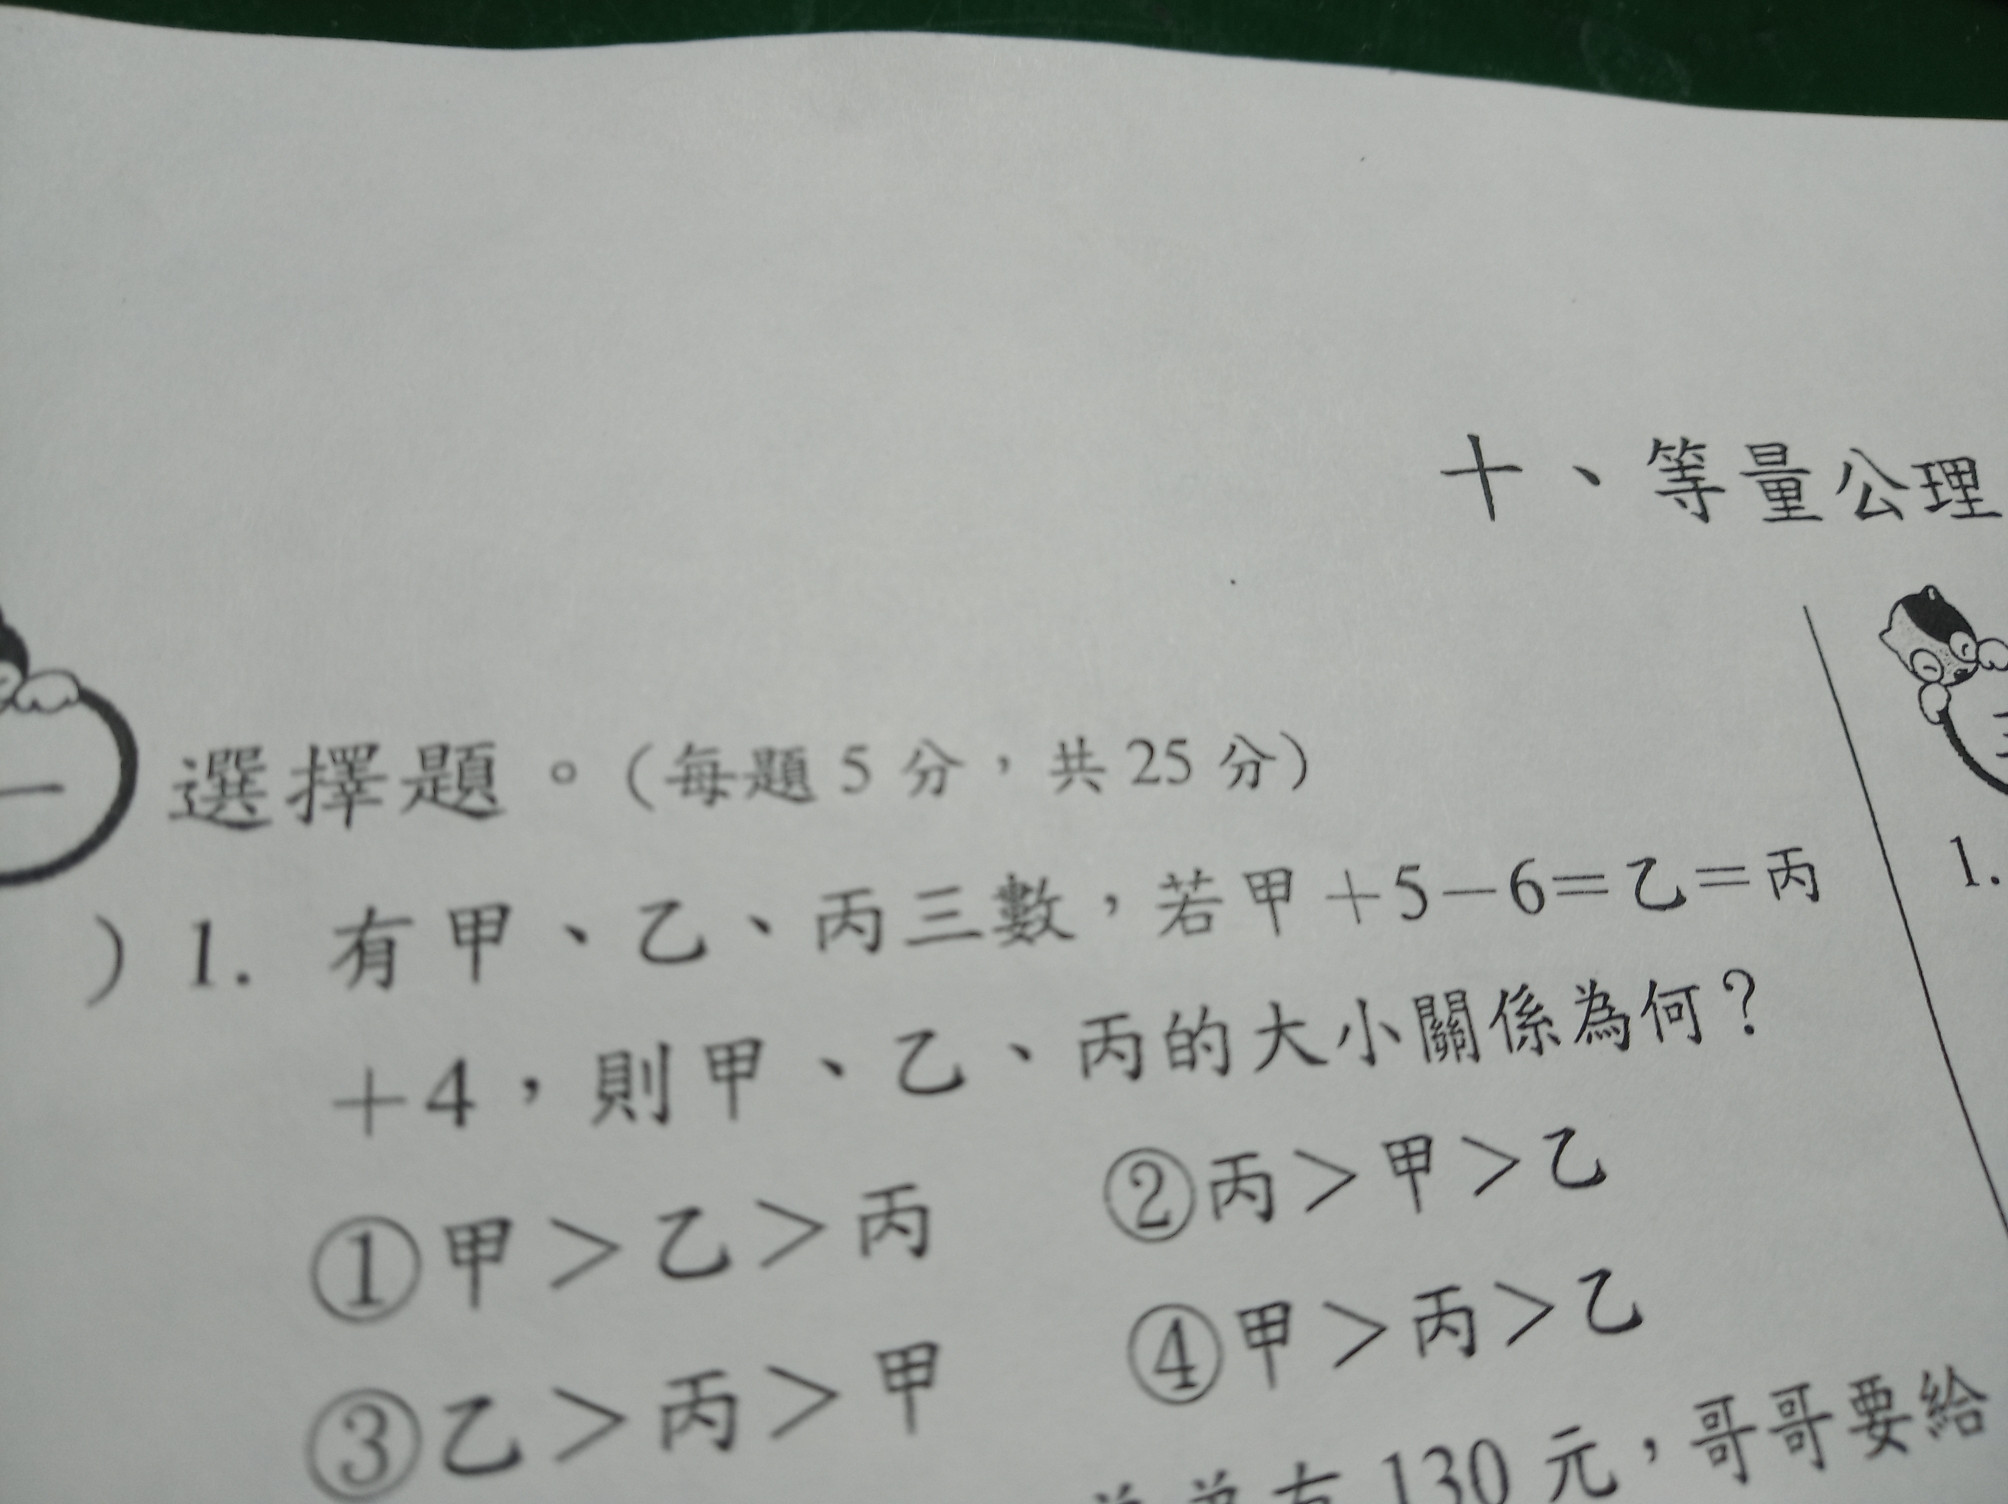 十、等量公理
一 選擇題。(每題5分，共25分)
)1. 有甲、乙、丙三數，若甲+5-6=乙=丙
+4，則甲、乙、丙的大小關係為何?
①甲>乙>丙 ②丙>甲>乙
③乙>丙>甲 ④甲>丙>乙
130元，哥哥要給
1.